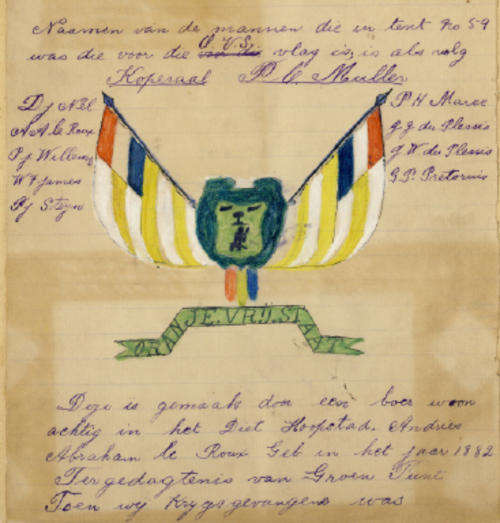 Naamen van de mannen die in tent No 59
was die voor die O.V.S. vlag is, is als volg
Koperaal P. C. Muller
D J Nel
A A le Roux
P J Willemse
W F James
P J Steyn
P. H Maree
G J du Plessis
J W du Plessis
G. P. Pretorius
ORANJE.VRIJ.STAAT
Deze is gemaak door een boer woon
achtig in het Dist Hoopstad. Andries
Abraham le Roux Geb in het jaar 1882
Ter gedagtenis van Groen Punt
Toen wy Krygsgevangene was